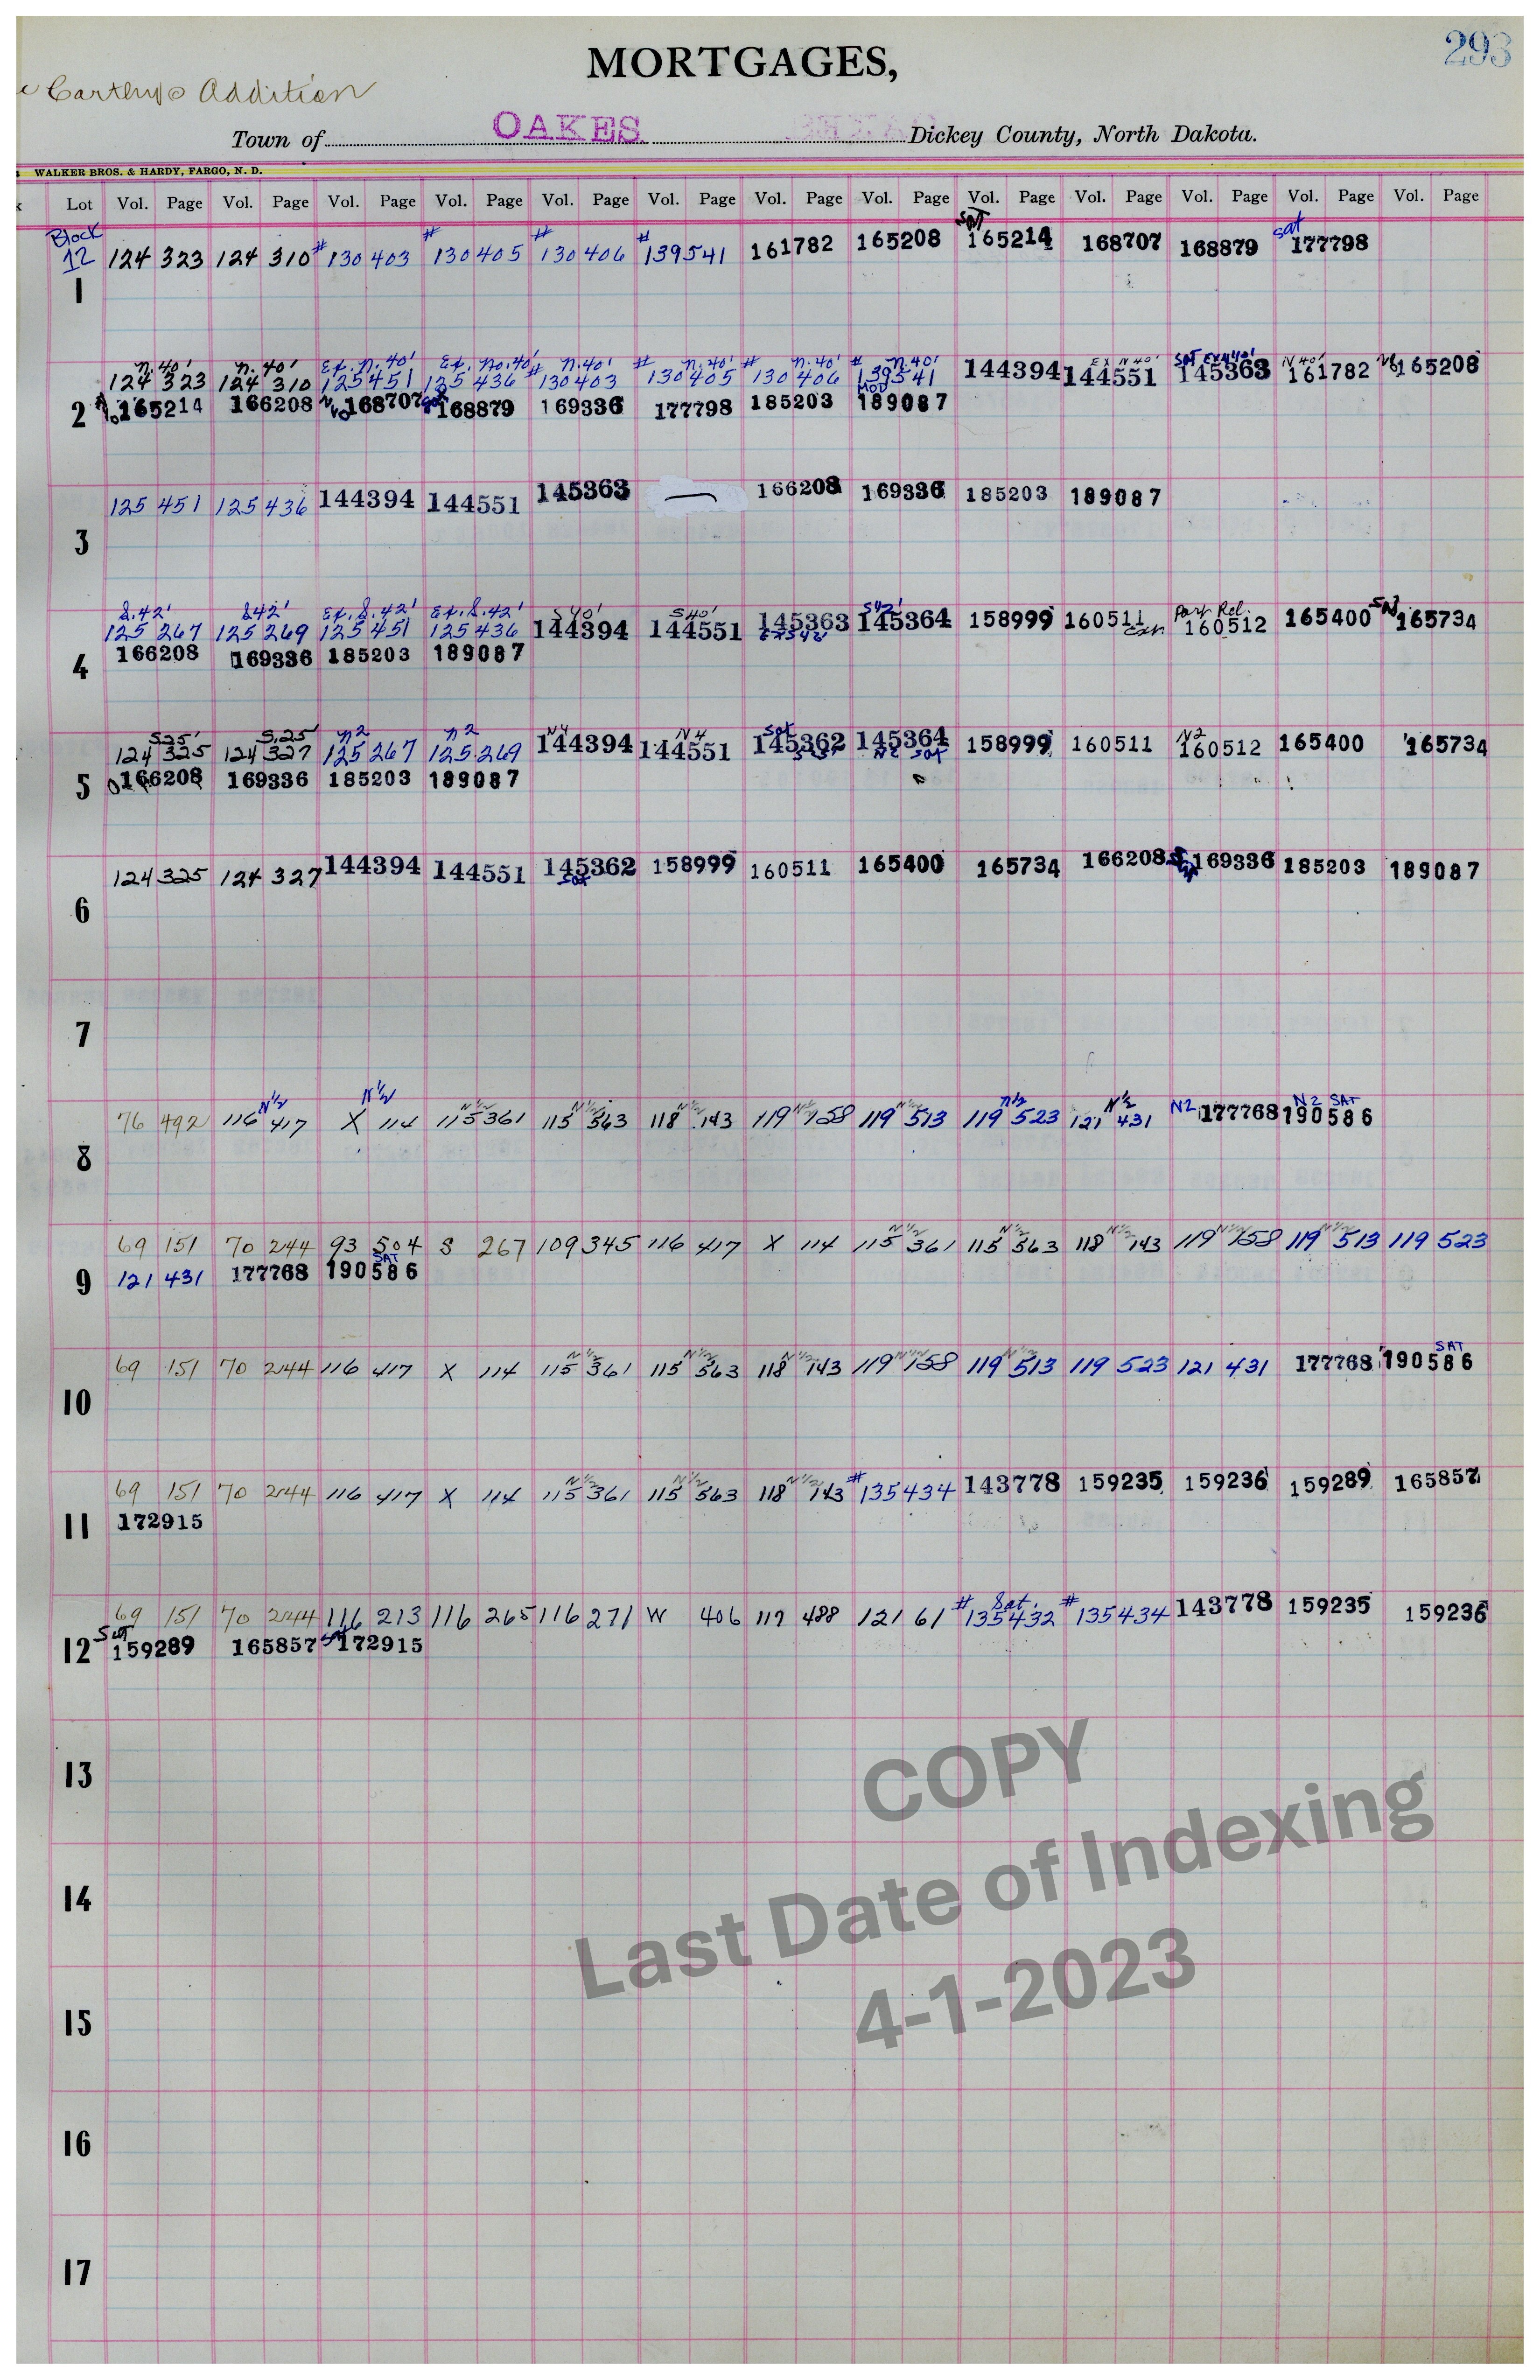 293
MORTGAGES,
Carthys Addition
Town of OAKES Dickey County, North Dakota.
WALKER BROS. & HARDY, FARGO, N. D.
Lot Vol. Page Vol. Page Vol. Page Vol. Page Vol. Page Vol. Page Vol. Page Vol. Page Vol. Page Vol. Page Vol. Page Vol. Page Vol. Page
Block SAT Sat
12 124 323 124 310 # 130 403 # 130 405 # 130 406 # 139541 161782 165208 165214 168707 168879 177798
1
N. 40' N. 40' Ex. N. 40' Ex. No. 40' N. 40' N. 40' N. 40' N. 40' Ex N 40' SAT Ex N 40' N 40'
124 323 124 310 125 451 125 436 # 130 403 # 130 405 # 130 406 # 139541 144394 144551 145363 161782 165208
2 165214 166208 168707 168879 169336 177798 185203 Mod 189087
125 451 125 436 144394 144551 145363 — 166208 169336 185203 189087
3
S. 42' S 42' Ex. S. 42' Ex. S. 42' S 40' S 40' S 42' Part Rel. Sat
125 267 125 269 125 451 125 436 144394 144551 145363 145364 158999 160511 160512 165400 165734
Ex S 42'
4 166208 169336 185203 189087
S 25' S. 25' N 2 N 2 N 4 N 4 Sat N 2
124 325 124 327 125 267 125 269 144394 144551 145362 145364 158999 160511 160512 165400 165734
N 2 Sat
5 166208 169336 185203 189087
124 325 124 327 144394 144551 145362 158999 160511 165400 165734 166208 169336 185203 189087
Sat
6
7
N 1/2 N 1/2 N 1/2 N 1/2 N 1/2 N 1/2 N 1/2 N 1/2 N 1/2 N2 N2 SAT
76 492 116 417 X 114 115 361 115 563 118 143 119 158 119 513 119 523 121 431 177768 190586
8
N 1/2 N 1/2 N 1/2 N 1/2 N 1/2
69 151 70 244 93 504 S 267 109 345 116 417 X 114 115 361 115 563 118 143 119 158 119 513 119 523
SAT
9 121 431 177768 190586
N 1/2 N 1/2 N 1/2 N 1/2 N 1/2 SAT
69 151 70 244 116 417 X 114 115 361 115 563 118 143 119 158 119 513 119 523 121 431 177768 190586
10
N 1/2 N 1/2 N 1/2
69 151 70 244 116 417 X 114 115 361 115 563 118 143 # 135434 143778 159235 159236 159289 165857
11 172915
Sat.
69 151 70 244 116 213 116 265 116 271 W 406 117 488 121 61 # 135432 # 135434 143778 159235 159236
Sat
12 159289 165857 Sat 172915
13
14
15
16
17
COPY
Last Date of Indexing
4-1-2023